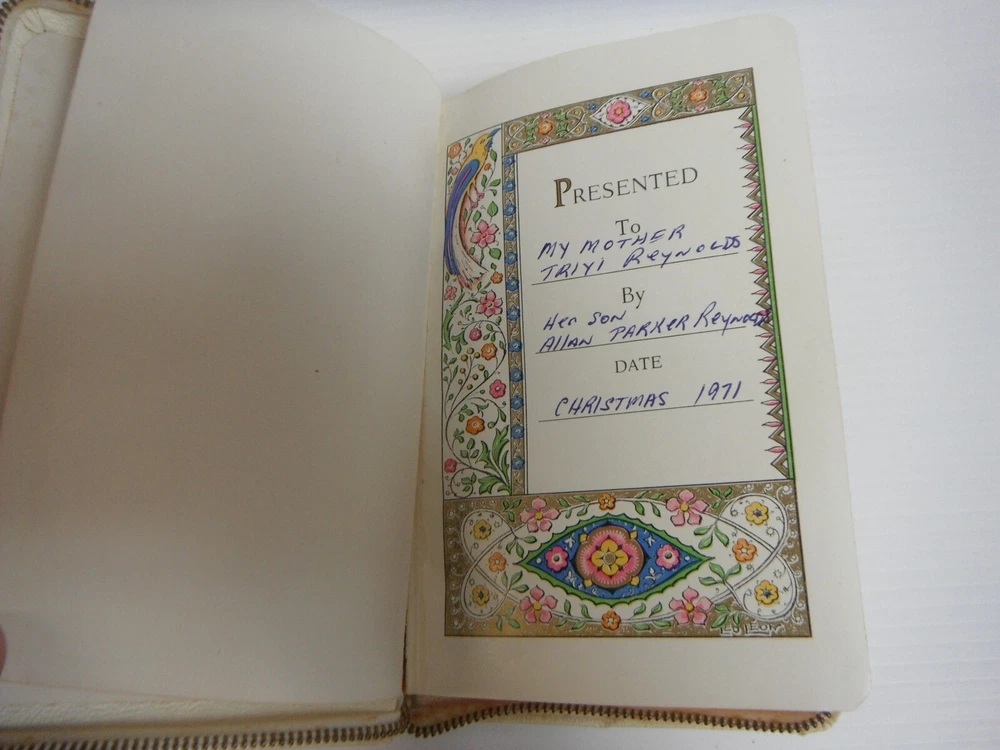 PRESENTED
To
MY MOTHER
TRIXI REYNOLDS
By
Her SON
Allan PARKER Reynolds
DATE
CHRISTMAS 1971